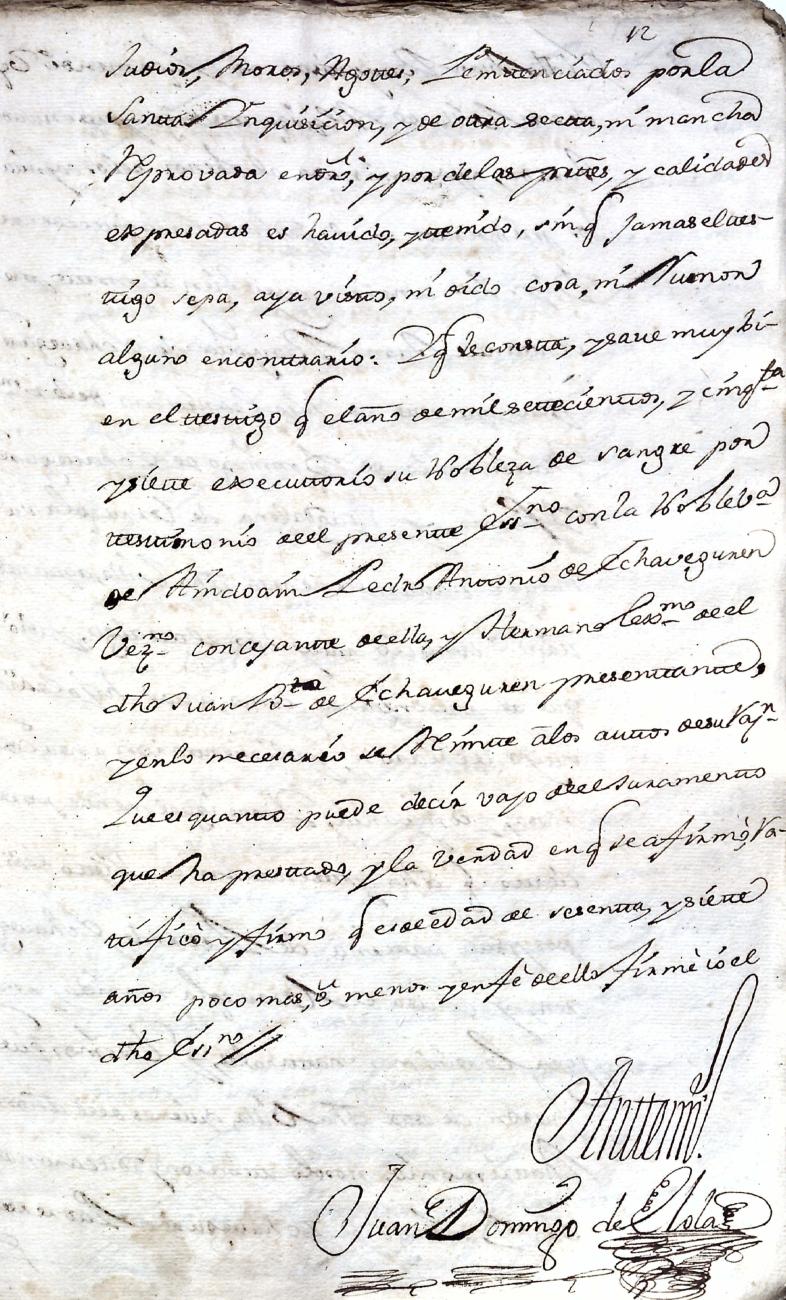 12
Judios, Moros, Agotes, Penitenciados por la
Santta Inquisicion, y de otra secta, ni mancha
Reprovada en dro, y por de las prtes, y calidades
expresadas es havido, y ttenido, sin q Jamas el ttes-
ttigo sepa, aya visto, ni oido cosa, ni Rumor
alguno en conttrario: Y q le constta, y save muy bi-
en el ttesttigo q el año de mil settecienttos, y cinqta
y siette executtorió su Nobleza de sangre por
ttesttimonio de el presentte Essno con la Noble va
de Aindoain Pedro Anttonio de Echaveguren
Vezno concejantte de ella, y Hermano lexmo de el
dho Juan Bta de Echaveguren presenttantte,
y en lo necesario se Remitte a los auttos de su Razn
Que es quantto puede decir vajo de el Juramentto
que ha presttado, y la verdad en q se afirmó, Ra-
ttificó y firmó q es de edad de sesentta, y siette
años poco mas, ó menos y en fé de ello firmé io el
dho Essno//
Anttemi
Juan Domingo de Elola